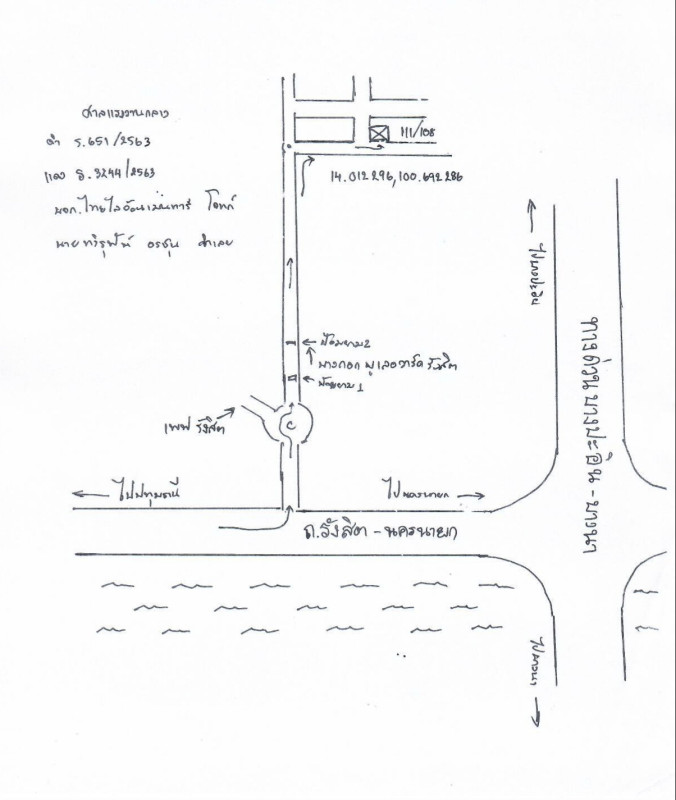 ศาลแรงงานกลาง
ดำ ร.651/2563
แดง ร.3244/2563
บจก.ไทย โจทก์
นาย อรชุน จำเลย
111/108
14.012296,100.692286
ไปบางปะอิน
ป้อมยาม 2
บางกอก บูเลอวาร์ด รังสิต
ป้อมยาม 1
เพฟ รังสิต
ทางด่วนบางปะอิน-บางนา
ไปปทุมธานี
ไปนครนายก
ถ.รังสิต-นครนายก
ไปบางนา